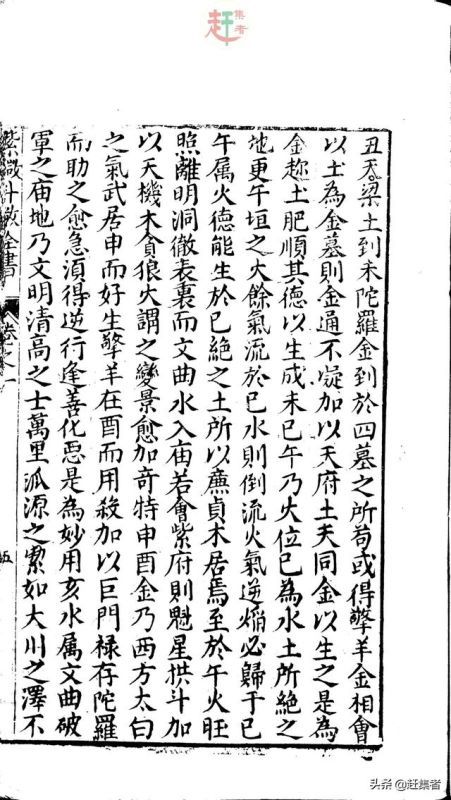 集者
赶
丑天梁土到未陀羅金到於四墓之所苟或得擎羊金相會
以土為金墓則金通不凝加以天府土天同金以生之是為
金趂土肥順其德以生成未巳午乃火位巳為水土所絶之
地更午垣之火餘氣流於巳水則倒流火氣逆焰必歸于巳
午属火德能生於巳絶之土所以亷貞木居焉至於午火旺
照離明洞徹表裏而文曲水入庙若會紫府則魁星拱斗加
以天機木貪狼火謂之變景愈加奇特申酉金乃西方太白
之氣武居申而好生擎羊在酉而用殺加以巨門禄存陀羅
而助之愈急須得逆行逢善化惡是為妙用亥水属文曲破
軍之庙地乃文明清高之士萬里派源之潔如大川之澤不
紫微斗数全書
卷之一
五
头条 @赶集者